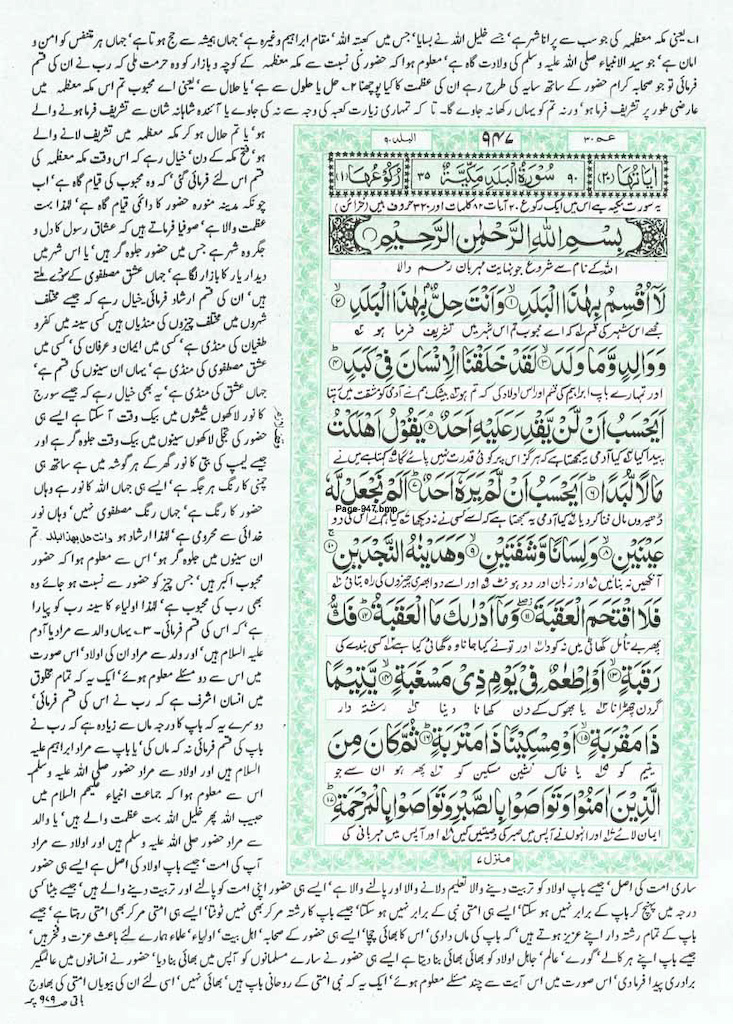 ۱۔ یعنی مکہ معظمہ کی جو سب سے پرانا شہر ہے' جسے خلیل اللہ نے بسایا' جس میں کعبتہ اللہ' مقام ابراہیم وغیرہ ہے' جہاں ہمیشہ سے حج ہوتا ہے' جہاں ہر متنفس کو امن و
امان ہے' جو سید الانبیاء صلی اللہ علیہ وسلم کی ولادت گاہ ہے' معلوم ہوا کہ حضور کی نسبت سے مکہ معظمہ کے کوچہ و بازار کو وہ حرمت ملی کہ رب نے ان کی قسم
فرمائی تو جو صحابہ کرام حضور کے ساتھ سایہ کی طرح رہے ان کی عظمت کا کیا پوچھنا ۲۔ حل یا حلول سے ہے' یا حلال سے' یعنی اے محبوب تم اس مکہ معظمہ میں
عارضی طور پر تشریف فرما ہو' ورنہ تم کو یہاں رکھا نہ جاوے گا۔ تا کہ تمہاری زیارت کعبہ کی وجہ سے نہ کی جاوے یا آئندہ شاہانہ شان سے تشریف فرما ہونے والے
ہو' یا تم حلال ہو کر مکہ معظمہ میں تشریف لانے والے
ہو' فتح مکہ کے دن' خیال رہے کہ اس وقت مکہ معظمہ کی
قسم اس لئے فرمائی گئی' کہ وہ محبوب کی قیام گاہ ہے' اب
چونکہ مدینہ منورہ حضور کا دائمی قیام گاہ ہے' لہٰذا بہت
عظمت والا ہے' صوفیا فرماتے ہیں کہ عشاق رسول کا دل و
جگر وہ شہر ہے جس میں حضور جلوہ گر ہیں' یا اس شہر میں
دیدار یار کا بازار لگا ہے' جہاں عشق مصطفوی کے سودے ملتے
ہیں' ان کی قسم ارشاد فرمائی' خیال رہے کہ جیسے مختلف
شہروں میں مختلف چیزوں کی منڈیاں ہیں کسی سینہ میں کفر و
طغیان کی منڈی ہے' کسی میں ایمان و عرفان کی' کسی میں
عشق مصطفوی کی منڈی ہے' یہاں ان سینوں کی قسم ہے'
جہاں عشق کی منڈی ہے' یہ بھی خیال رہے کہ جیسے سورج
کا نور لاکھوں شیشوں میں بیک وقت آ سکتا ہے ایسے ہی
حضور کی تجلی لاکھوں سینوں میں بیک وقت جلوہ گر ہے اور
جیسے لیمپ کی بتی کا نور گھر کے ہر گوشہ میں ہے ساتھ ہی
چمنی کا رنگ ہر جگہ ہے' ایسے ہی جہاں اللہ کا نور ہے وہاں
حضور کا رنگ ہے' جہاں رنگ مصطفوی نہیں' وہاں نور
خدائی سے محرومی ہے' لہٰذا ارشاد ہو وانت حل بھذا البلد تم
ان سینوں میں جلوہ گر ہو' اس سے معلوم ہوا کہ حضور
محبوب اکبر ہیں' جس چیز کو حضور سے نسبت ہو جائے وہ
بھی رب کی محبوب ہے' لہٰذا اولیاء کا سینہ رب کو پیارا
ہے' کہ اس کی قسم فرمائی۔ ۳۔ یہاں والد سے مراد یا آدم
علیہ السلام ہیں' اور ولد سے مراد ان کی اولاد' اس صورت
میں اس سے دو مسئلے معلوم ہوئے' ایک یہ کہ تمام مخلوق
میں انسان اشرف ہے کہ رب نے اس کی قسم فرمائی'
دوسرے یہ کہ باپ کا درجہ ماں سے زیادہ ہے کہ رب نے
باپ کی قسم فرمائی نہ کہ ماں کی' یا باپ سے مراد ابراہیم علیہ
السلام ہیں اور اولاد سے مراد حضور صلی اللہ علیہ وسلم
اس سے معلوم ہوا کہ جماعت انبیاء علیہم السلام میں
حبیب اللہ پھر خلیل اللہ بہت عظمت والے ہیں' یا والد
سے مراد حضور صلی اللہ علیہ وسلم ہیں اور اولاد سے مراد
آپ کی امت' جیسے باپ اولاد کی اصل ہے ایسے ہی حضور
عم ۳۰
۹۴۷
البلد ۹۰
اٰیَاتُهَا (۲۰)
۹۰ سُوْرَةُ الْبَلَدِ مَكِّيَّةٌ ۳۵
رُكُوْعُهَا (۱)
یہ سورت مکیہ ہے اس میں ایک رکوع ۲۰ آیات ۸۲ کلمات اور ۳۲۰ حروف ہیں (خزائن)
بِسْمِ اللّٰهِ الرَّحْمٰنِ الرَّحِيْمِ
اللہ کے نام سے شروع جو نہایت مہربان رحم والا
لَاۤ اُقْسِمُ بِهٰذَا الْبَلَدِ ۱ وَاَنْتَ حِلٌّۢ بِهٰذَا الْبَلَدِ ۲
مجھے اس شہر کی قسم کہ اے محبوب تم اس شہر میں تشریف فرما ہو
وَوَالِدٍ وَّمَا وَلَدَ ۳ لَقَدْ خَلَقْنَا الْاِنْسَانَ فِيْ كَبَدٍ ۴
اور تمہارے باپ ابراہیم کی قسم اور اس اولاد کی کہ تم ہو بیشک ہم نے آدمی کو مشقت میں رہتا
اَيَحْسَبُ اَنْ لَّنْ يَّقْدِرَ عَلَيْهِ اَحَدٌ ۵ يَقُوْلُ اَهْلَكْتُ
پیدا کیا کیا آدمی یہ سمجھتا ہے کہ ہرگز اس پر کوئی قدرت نہیں پائے گا کہتا ہے میں نے
مَالًا لُّبَدًا ۶ اَيَحْسَبُ اَنْ لَّمْ يَرَهٗۤ اَحَدٌ ۷ اَلَمْ نَجْعَلْ لَّهٗ
Page-947.bmp
ڈھیروں مال فنا کر دیا کیا آدمی یہ سمجھتا ہے کہ اسے کسی نے نہ دیکھا کیا ہم نے اس کی دو
عَيْنَيْنِ ۸ وَلِسَانًا وَّشَفَتَيْنِ ۹ وَهَدَيْنٰهُ النَّجْدَيْنِ ۱۰
آنکھیں نہ بنائیں اور زبان اور دو ہونٹ اور اسے دو ابھری چیزوں کی راہ بتائی
فَلَا اقْتَحَمَ الْعَقَبَةَ ۱۱ وَمَاۤ اَدْرٰىكَ مَا الْعَقَبَةُ ۱۲ فَكُّ
پھر بے تامل گھاٹی میں نہ کودا اور تو نے کیا جانا وہ گھاٹی کیا ہے کسی بندے کی
رَقَبَةٍ ۱۳ اَوْ اِطْعٰمٌ فِيْ يَوْمٍ ذِيْ مَسْغَبَةٍ ۱۴ يَّتِيْمًا
گردن چھڑانا یا بھوک کے دن کھانا دینا رشتہ دار
ذَا مَقْرَبَةٍ ۱۵ اَوْ مِسْكِيْنًا ذَا مَتْرَبَةٍ ۱۶ ثُمَّ كَانَ مِنَ
یتیم کو یا خاک نشین مسکین کو پھر ہو ان سے جو
الَّذِيْنَ اٰمَنُوْا وَتَوَاصَوْا بِالصَّبْرِ وَتَوَاصَوْا بِالْمَرْحَمَةِ ۱۷
ایمان لائے اور انہوں نے آپس میں صبر کی وصیتیں کیں اور آپس میں مہربانی کی
منزل ۷
ساری امت کی اصل' جیسے باپ اولاد کو تربیت دینے والا تعلیم دلانے والا اور پالنے والا ہے' ایسے ہی حضور اپنی امت کو پالنے اور تربیت دینے والے ہیں' جیسے بیٹا کسی
درجہ میں پہنچ کر باپ کے برابر نہیں ہو سکتا' ایسے ہی امتی نبی کے برابر نہیں ہو سکتا' جیسے باپ کا رشتہ مر کر بھی نہیں ٹوٹتا' ایسے ہی امتی مر کر بھی امتی رہتا ہے' جیسے
باپ کے تمام رشتہ دار اپنے عزیز ہوتے ہیں' کہ باپ کی ماں دادی' اس کا بھائی چچا' ایسے ہی حضور کے صحابہ' اہل بیت' اولیاء' علماء ہمارے لئے باعث عزت و فخر ہیں'
جیسے باپ اپنے ہر کالے' گورے' عالم' جاہل اولاد کو بھائی بھائی بنا دیتا ہے ایسے ہی حضور نے سارے مسلمانوں کو آپس میں بھائی بنا دیا' حضور نے انسانوں میں عالمگیر
برادری پیدا فرما دی' اس صورت میں اس آیت سے چند مسئلے معلوم ہوئے' ایک یہ کہ نبی امتی کے روحانی باپ ہیں' بھائی نہیں' اسی لئے ان کی بیویاں امتی کی بھاوج
باقی صہ ۹۷۹ پر